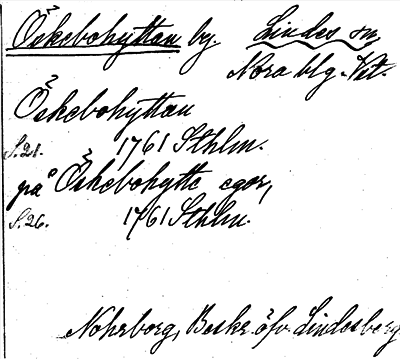 Öskebohyttan by. Lindes sn,
Nora blg. Vstm.
Öskebohyttan
S. 21. 1761 Sthlm.
på Öskebohytte egor,
S. 26. 1761 Sthlm.
Nohrborg, Beskr. öfv. Lindesberg